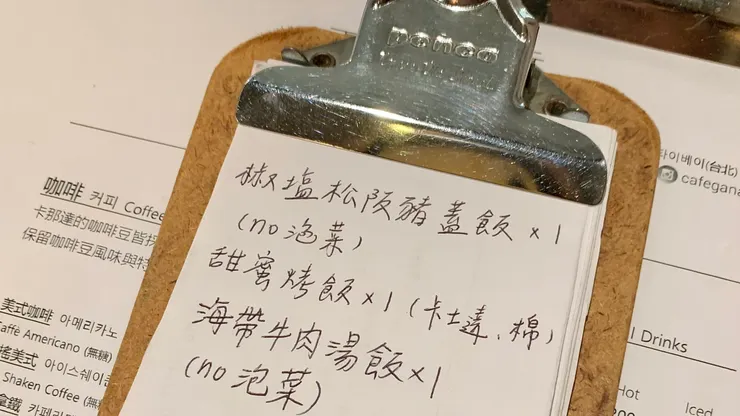 椒塩松阪豬蓋飯×1
(no泡菜)
甜蜜烤飯×1(卡士達、棉)
海帶牛肉湯飯×1
(no泡菜)
咖啡 커피 Coffee
卡那達的咖啡豆皆採
保留咖啡豆風味與特
美式咖啡 아메리카노
Caffè Americano (無糖)
搖美式 아이스쉐이
Shaken Coffee (無糖)
拿鐵 카페라
타이베이(台北)
cafegana
l Drinks
Hot
Iced